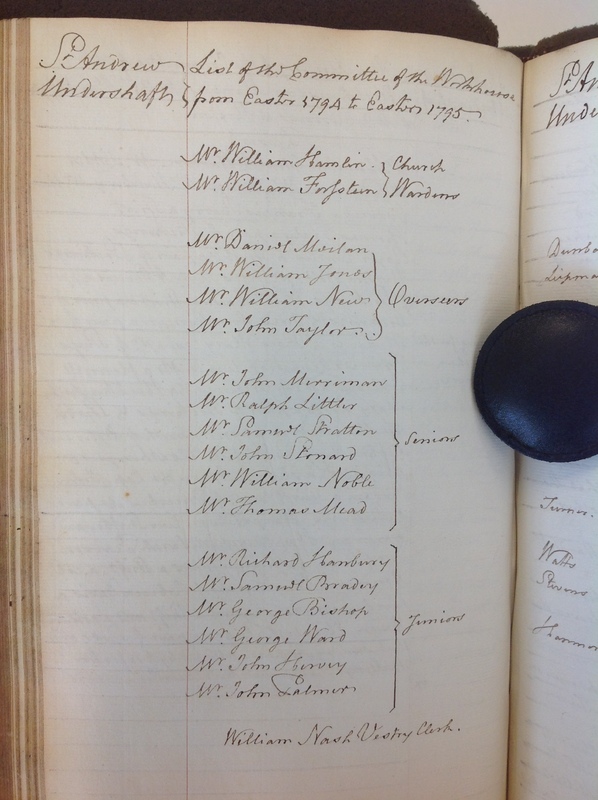 St. Andrew Undershaft
List of the Committee of the Workhouse
from Easter 1794 to Easter 1795.
Mr. William Hamlin
Mr. William Forsstein
Church Wardens
Mr. Daniel Meilan
Mr. William Jones
Mr. William New
Mr. John Taylor
Overseers
Mr. John Merriman
Mr. Ralph Littler
Mr. Samuel Stratton
Mr. John Stonard
Mr. William Noble
Mr. Thomas Mead
Seniors
Mr. Richard Hanbury
Mr. Samuel Bradey
Mr. George Bishop
Mr. George Ward
Mr. John Hervey
Mr. John Palmer
Juniors
William Nash Vestry Clerk.
St. An
Unde
Turner.
Watts
Stevens